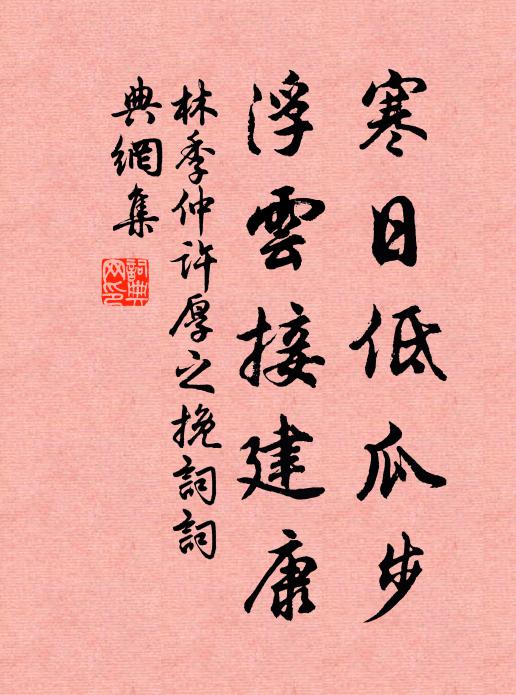 寒日低瓜步
浮雲接建康
林季仲許厚之挽詞詞
典網集
詞典網印